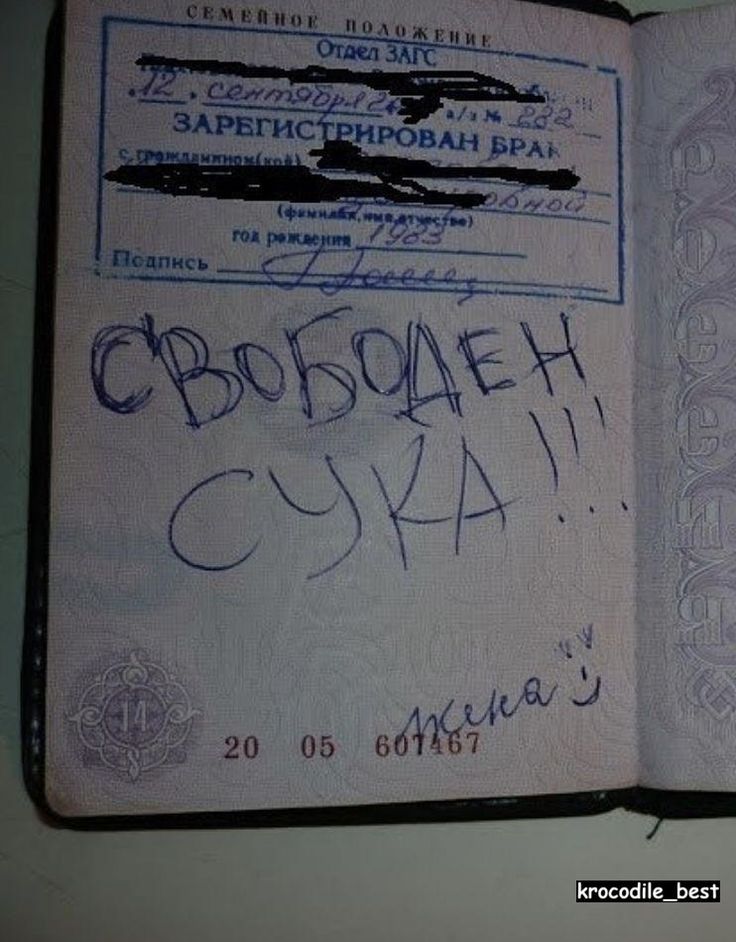 СЕМЕЙНОЕ ПОЛОЖЕНИЕ
Отдел ЗАГС
12 сентября 2 а/з № 222
ЗАРЕГИСТРИРОВАН БРАК
с гражданином(кой)
(фамилия, имя, отчество)
год рождения 1983
Подпись
СВОБОДЕН
СУКА!!!
жена
14
20 05 607467
krocodile_best